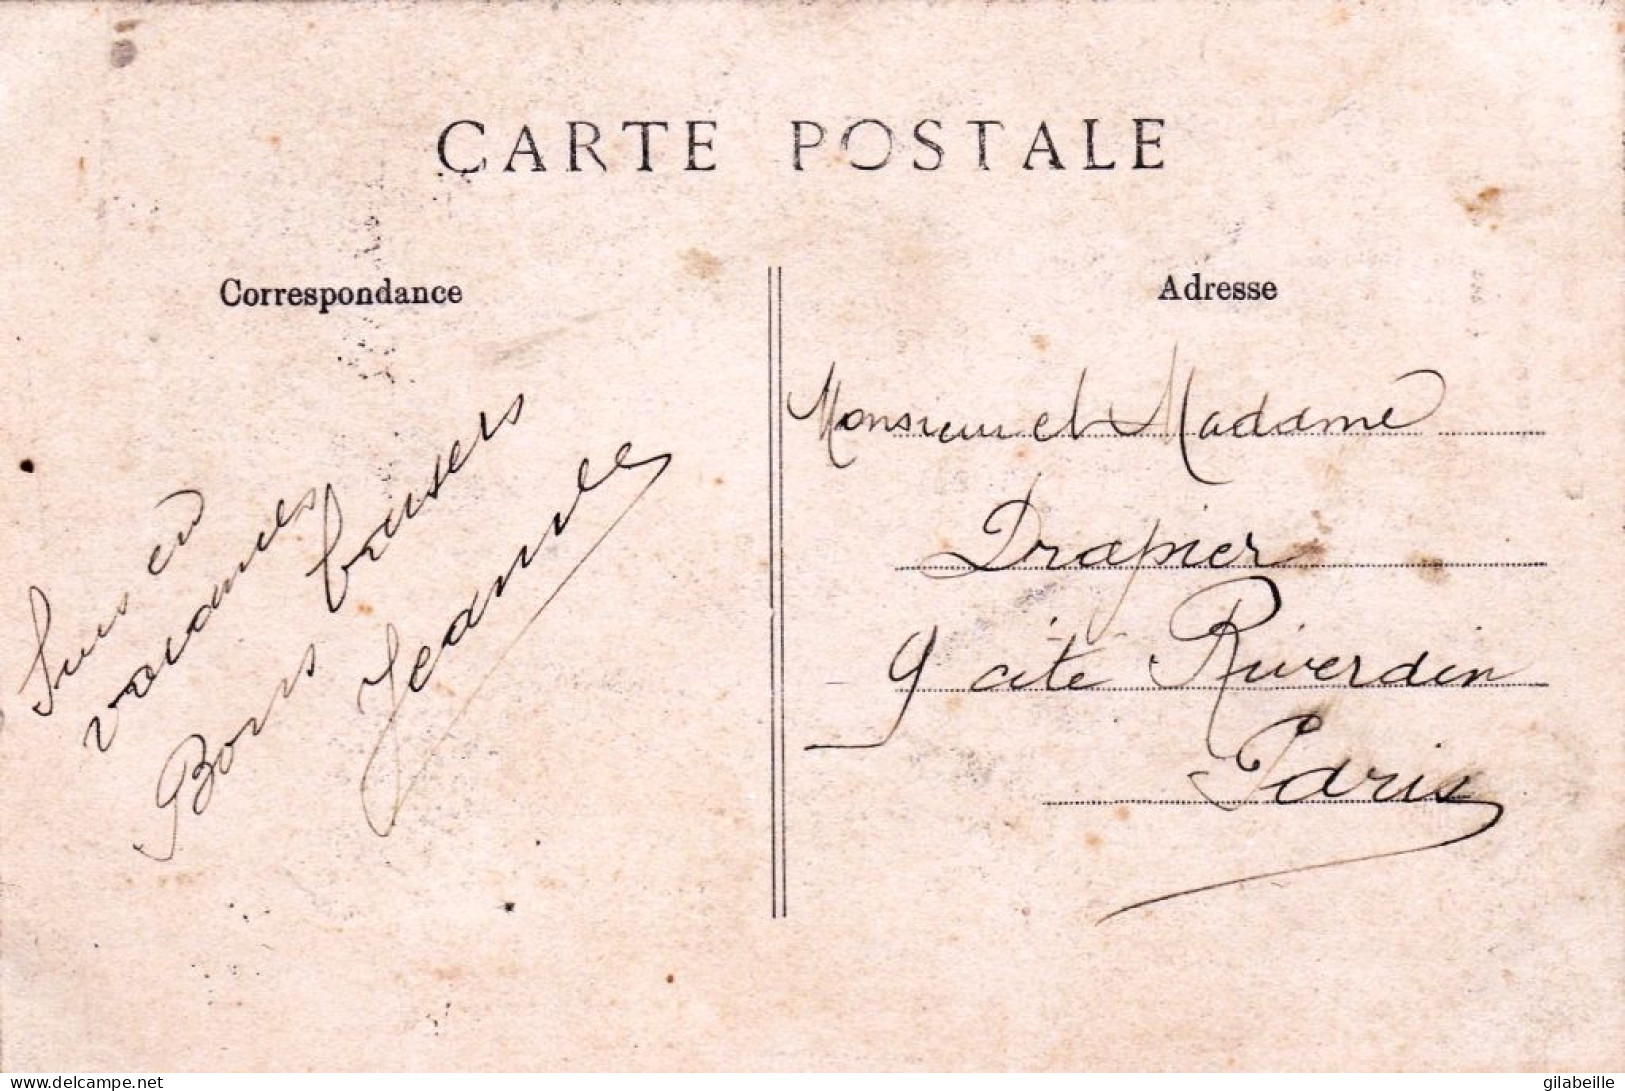 CARTE POSTALE
Correspondance
Suis en
vacances
Bons baisers
Jeanne
Adresse
Monsieur et Madame
Drapier
9 cité Riverdin
Paris
www.delcampe.net
gilabeille